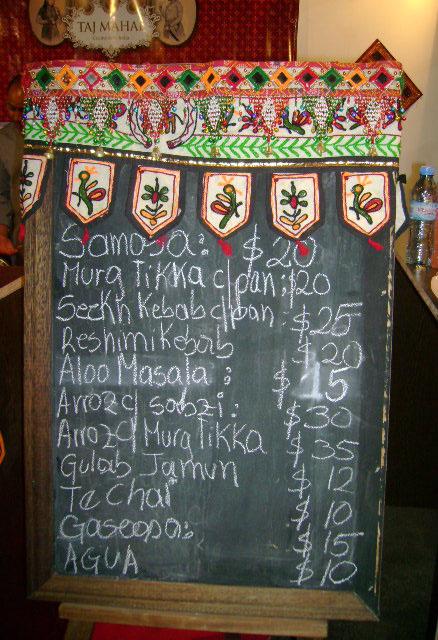 TAJ MAHAL
Samosa: $20
Murg Tikka c/pan: $20
Seekh Kebab c/pan: $25
Reshmi Kebab $20
Aloo Masala: $15
Arroz c/ sabzi: $30
Arroz c/ Murg Tikka $35
Gulab Jamun $12
Te Chai $10
Gaseosa: $15
AGUA $10